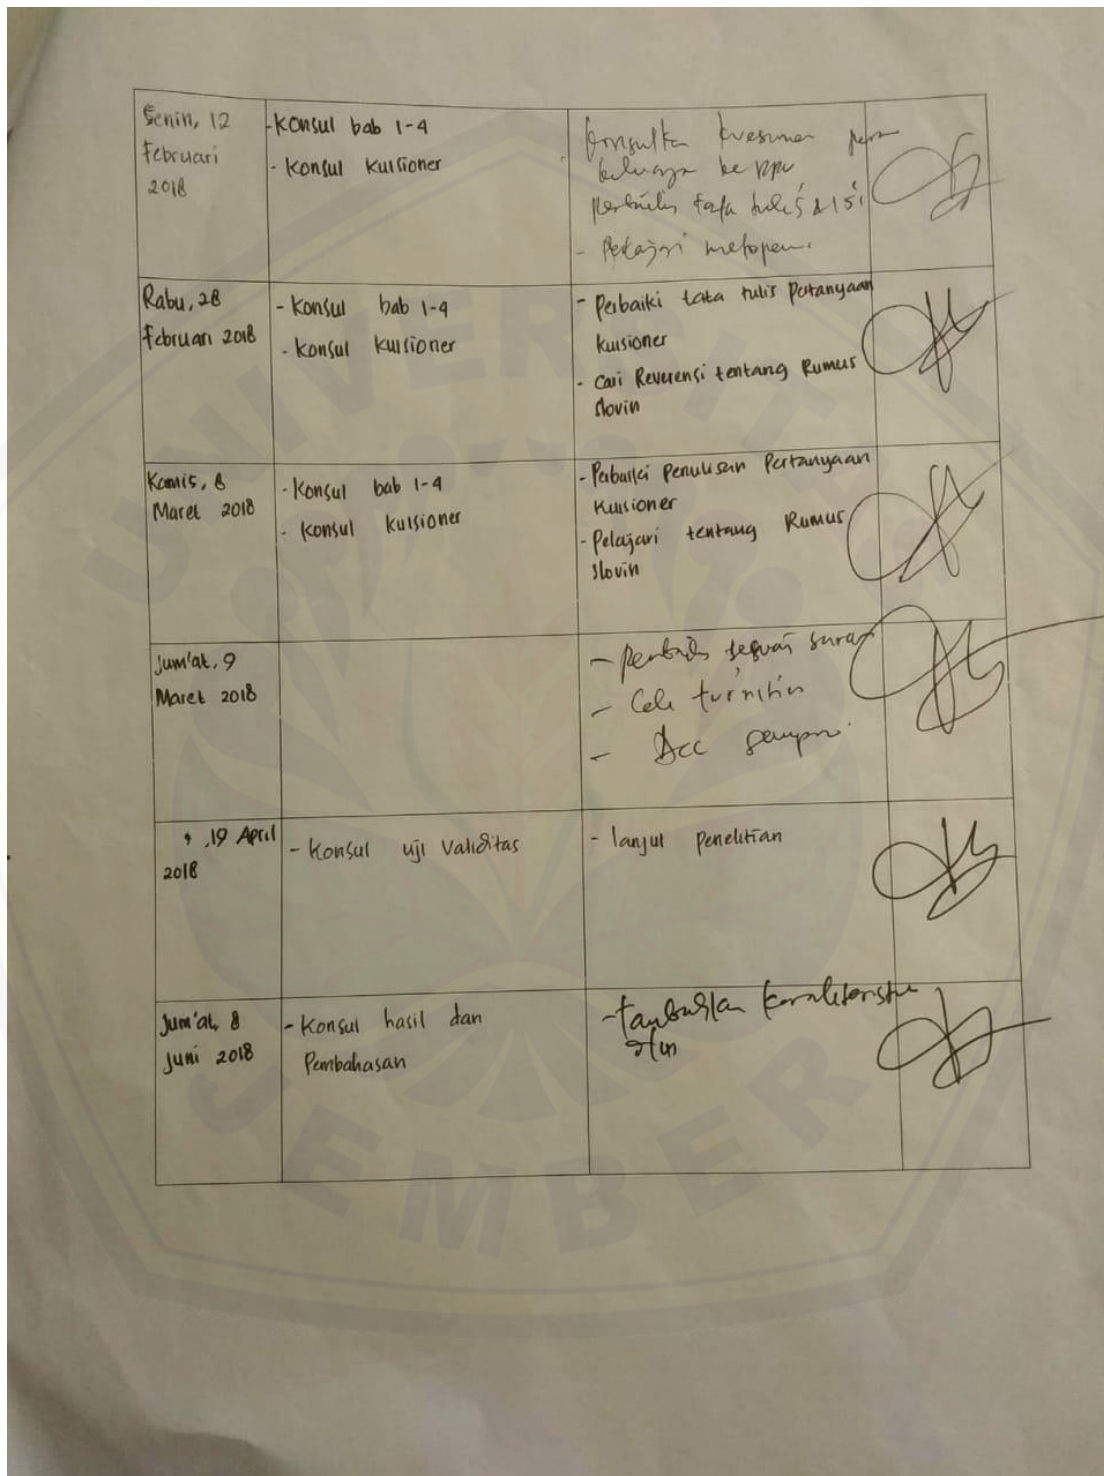 Senin, 12
Februari
2018
- Konsul bab 1-4
- Konsul kuisioner
tata tulis & isi
- Pelajari metopen.
Rabu, 28
Februari 2018
- Konsul bab 1-4
- Konsul kuisioner
- Perbaiki tata tulis Pertanyaan
kuisioner
- Cari Reverensi tentang Rumus
slovin
Kamis, 8
Maret 2018
- Konsul bab 1-4
- Konsul kuisioner
- Perbaiki Penulisan Pertanyaan
Kuisioner
- Pelajari tentang Rumus
slovin
Jum'at, 9
Maret 2018
- perbaiki sesuai saran
- Cek turnitin
- Acc sempro
, 19 April
2018
- Konsul uji Validitas
- lanjut Penelitian
Jum'at, 8
Juni 2018
- Konsul hasil dan
Pembahasan
- tambahkan karakteristik
UNIVERSITAS
JEMBER